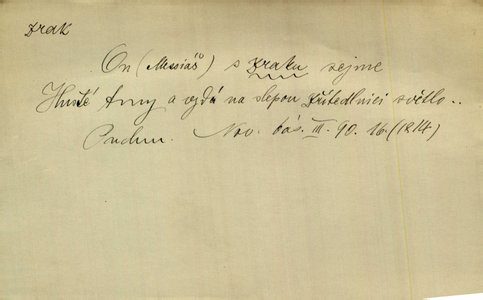 zrak
On (Messiáš) s zraku sejme
Husté tmy a vydá na slepou zřítedlnici světlo..
Puchm. Nov. bás. III. 90. 16. (1814)